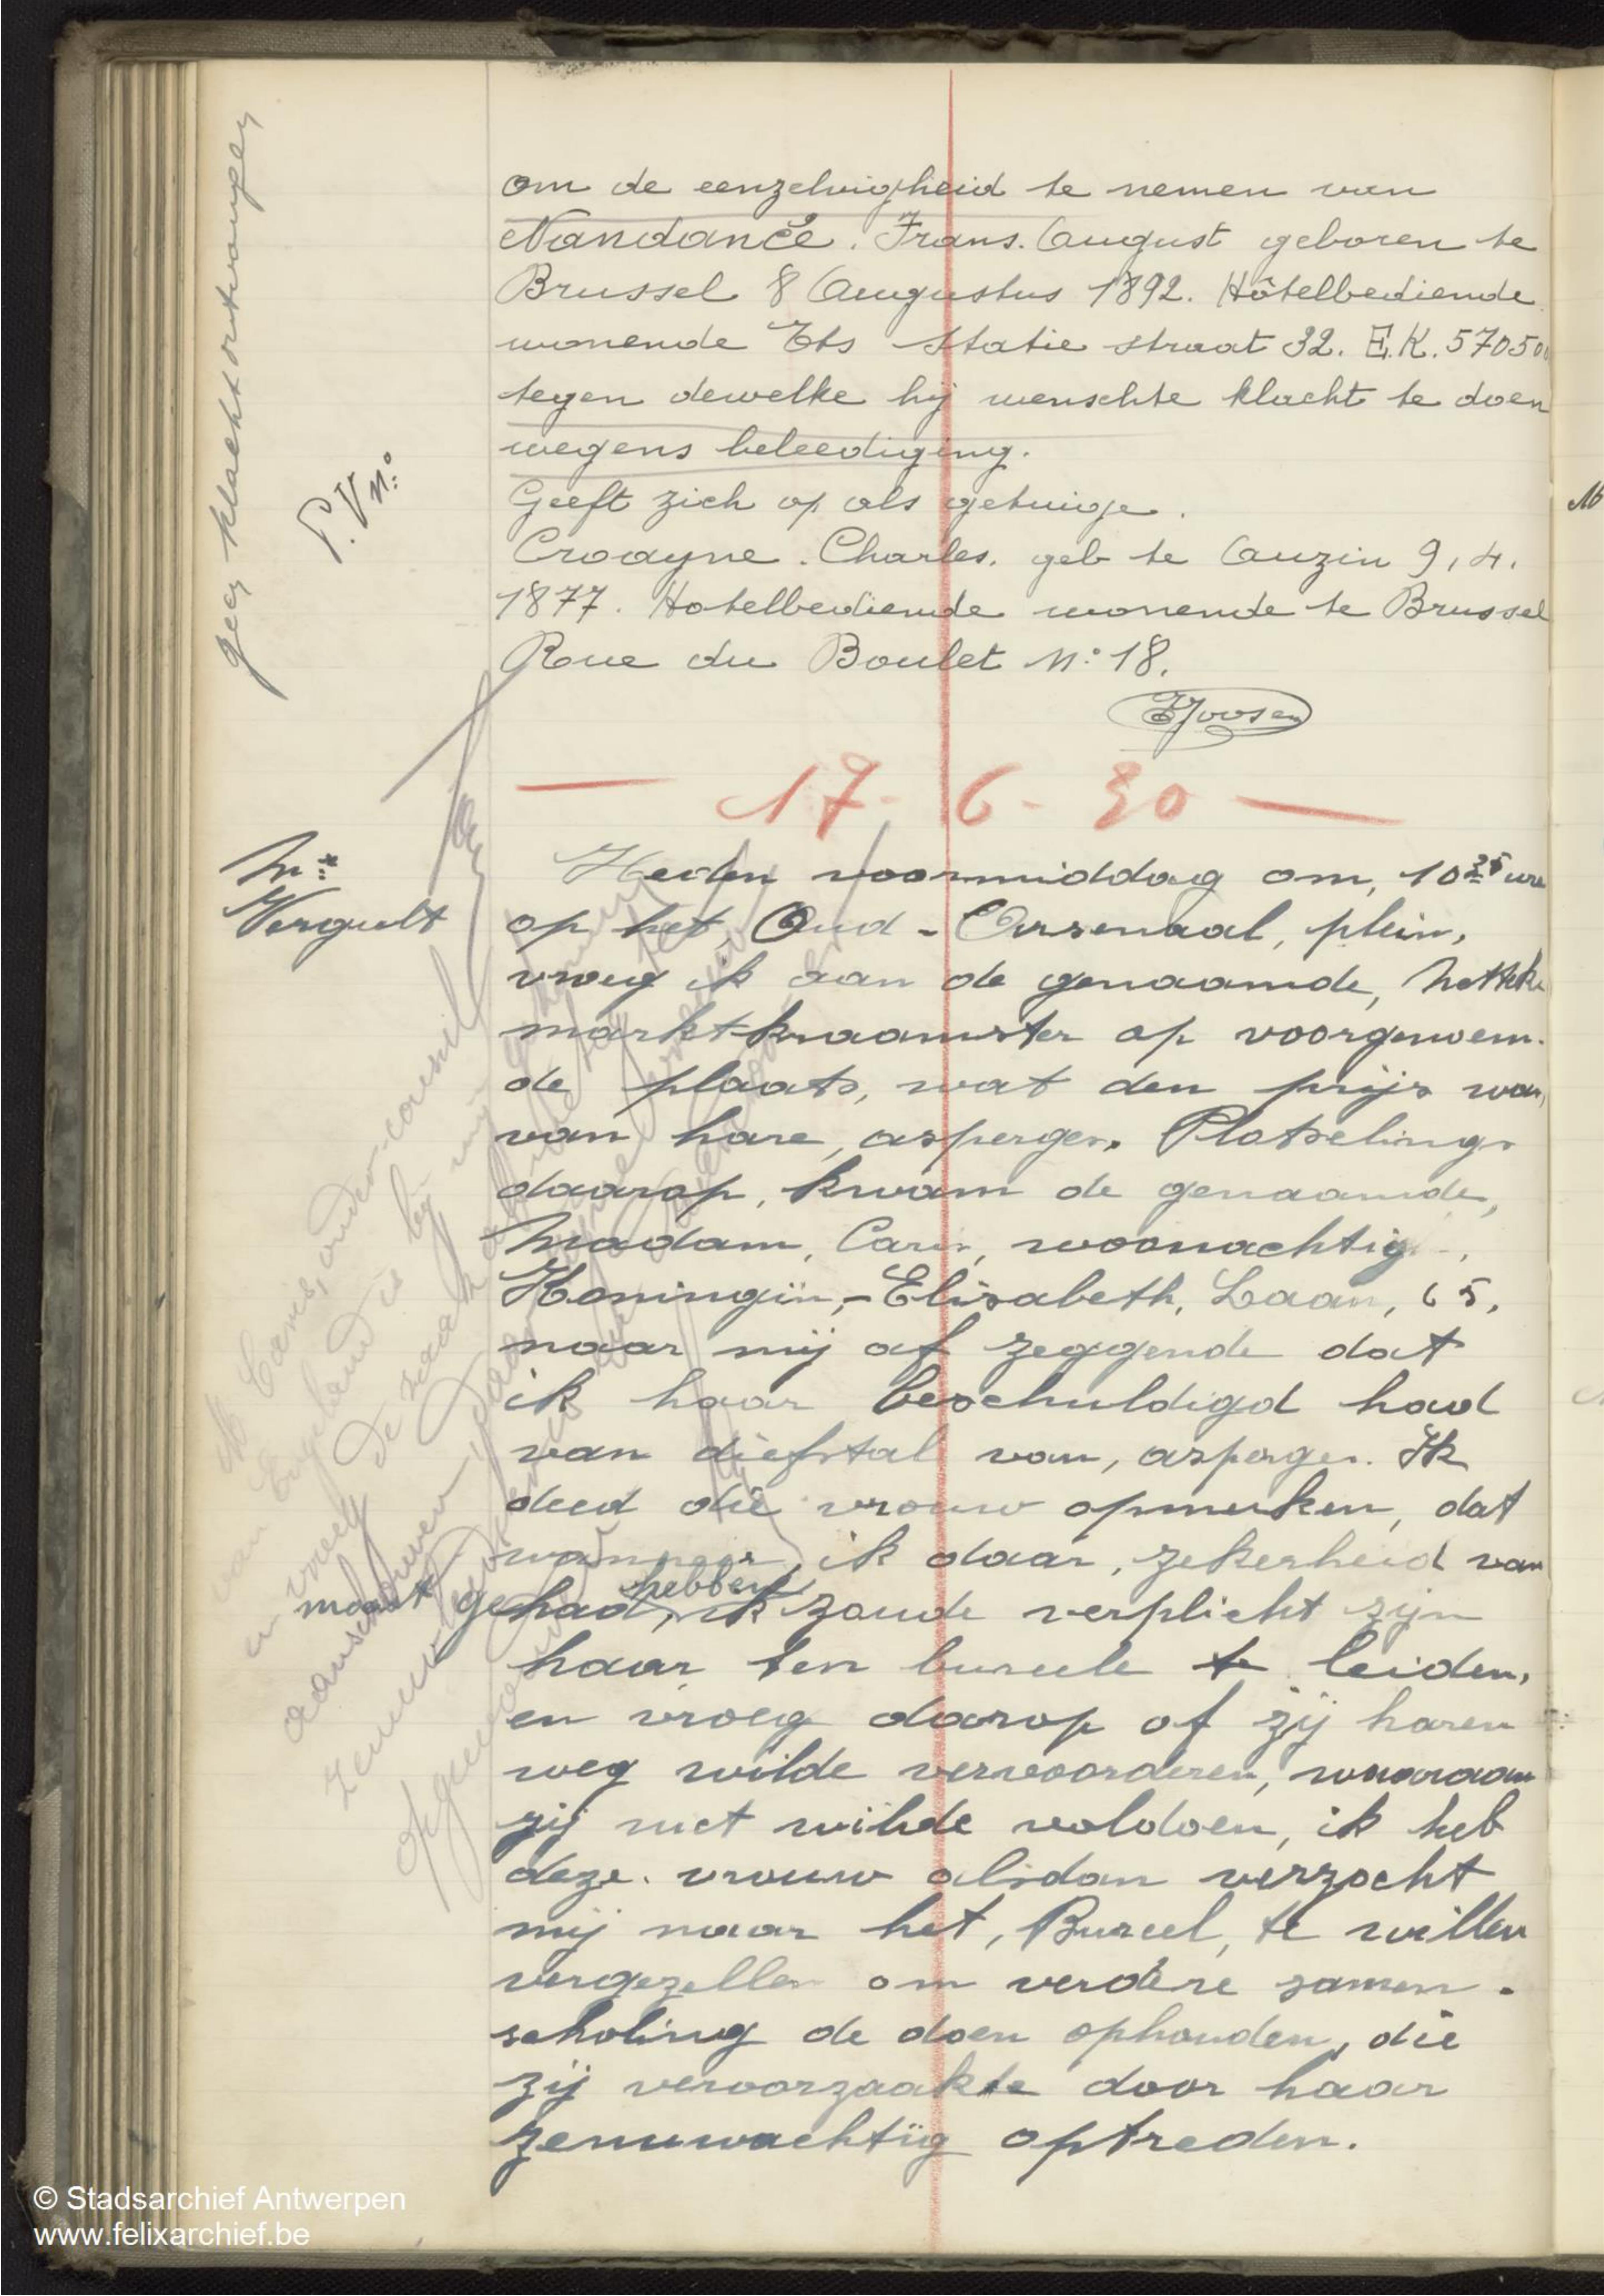 om de eenzelvigheid te nemen van
Nandancé. Frans. August geboren te
Brussel 8 Augustus 1892. Hôtelbediende
wonende Ets Statie straat 32. E.K. 57050
tegen dewelke hij wenschte klacht te doen
wegens beleediging.
Geeft zich op als getuige.
Croayne. Charles. geb te Auzin 9,4.
1877. Hotelbediende wonende te Brussel
Roue du Boulet N:18.
Joosen
geen klacht ontvangen
P.V n:
— 17-6-30 —
Vergult
Heden voormiddag om, 10 35 ure
op het Oud-Arsenaal, plein,
vroeg ik aan de genaamde, Netteke
markt-kraamster op voorgenoem-
de plaats, wat den prijs was,
van hare, asperges. Plotselings
daarop, kwam de genaamde,
Madam, Caris, woonachtig,
Koningin,-Elisabeth, Laan, 65,
naar mij af zeggende dat
ik haar beschuldigd had
van diefstal van, asperges. Ik
deed die vrouw opmerken, dat
wanneer, ik daar, zekerheid van
moest gehad, hebben ik zoude verplicht zijn
haar ten bureele te leiden,
en vroeg daarop of zij haren
weg wilde vervoorderen, waaraan
zij niet wilde voldoen, ik heb
deze. vrouw alsdan verzocht
mij naar het, Bureel, te willen
vergezellen om verdere samen-
scholing de doen ophouden, die
zij veroorzaakte door haar
zenuwachtig optreden.
M Caris, onder-consul
van Engeland is bij mij
en vroeg de zaak
aanschouwen
© Stadsarchief Antwerpen
www.felixarchief.be